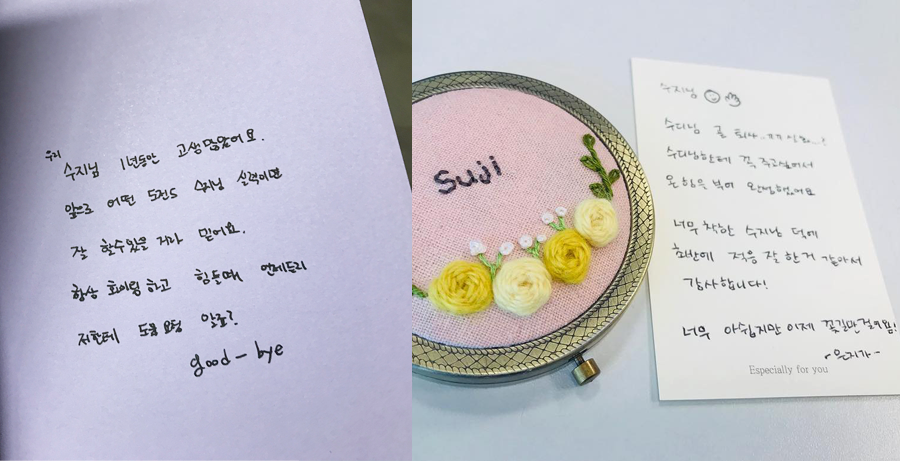 우리
수지님 1년동안 고생많았어요.
앞으로 어떤 도전도 수지님 실력이면
잘 할수있을 거라 믿어요.
항상 화이팅하고 힘들때 언제든지
저한테 도움 요청 알죠?
good-bye
Suji
수지님
수지님 곧 퇴사..ㅠㅠ
수지님한테 꼭 주고싶어서
온 힘을 부어 완성했어요
너무 착한 수지님 덕에
회사에 적응 잘 한거 같아서
감사합니다!
너무 아쉽지만 이제 꽃길만 걸어욤!
-은지가-
Especially for you